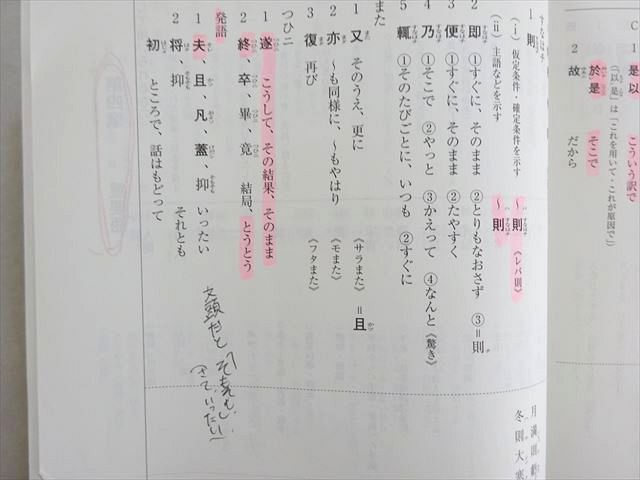 C
1 是以 こういう訳で
(「以是」は「これを用いて・これが原因で」)
於是 そこで
2 故 だから
1 則
(ⅰ) 仮定条件・確定条件を示す ～則《レバ則》
(ⅱ) 主語などを示す ～則
2 即 ①すぐに、そのまま ②とりもなおさず ③=則
3 便 ①すぐに、そのまま ②たやすく
4 乃 ①そこで ②やっと ③かえって ④なんと《驚き》
5 輒 ①そのたびごとに、いつも ②すぐに
また
1 又 そのうえ、更に 《サラまた》 =且
2 亦 ～も同様に、～もやはり 《モまた》
3 復 再び 《フタまた》
つひニ
1 遂 こうして、その結果、そのまま
2 終、卒、畢、竟 結局、とうとう
発語
1 夫、且、凡、蓋、抑 いったい
2 将、抑 それとも
初 ところで、話はもどって
文頭だと
月満則
冬則大寒